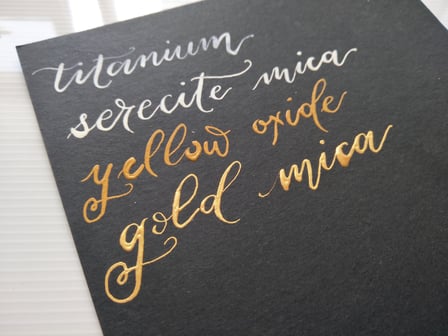 titanium
serecite mica
yellow oxide
gold mica